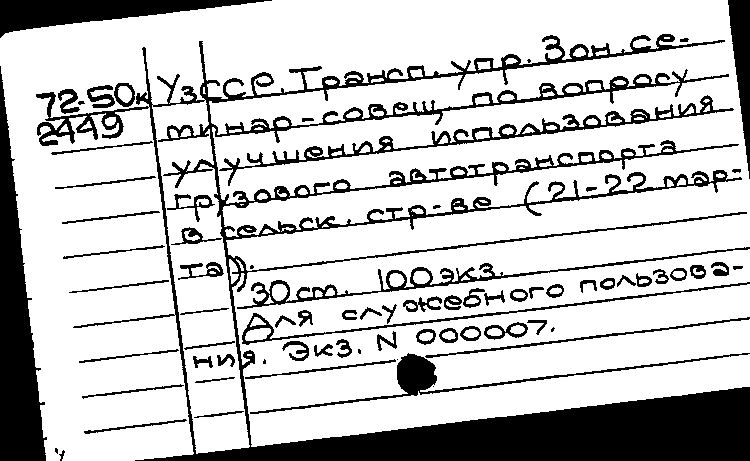 72-50к УзССР. Трансп. упр. Зон. се-
2449 минар-совещ. по вопросу
улучшения использования
грузового автотранспорта
в сельск. стр-ве (21-22 мар-
та)).
30 ст. 100 экз.
Для служебного пользова-
ния. Экз. N 000007.